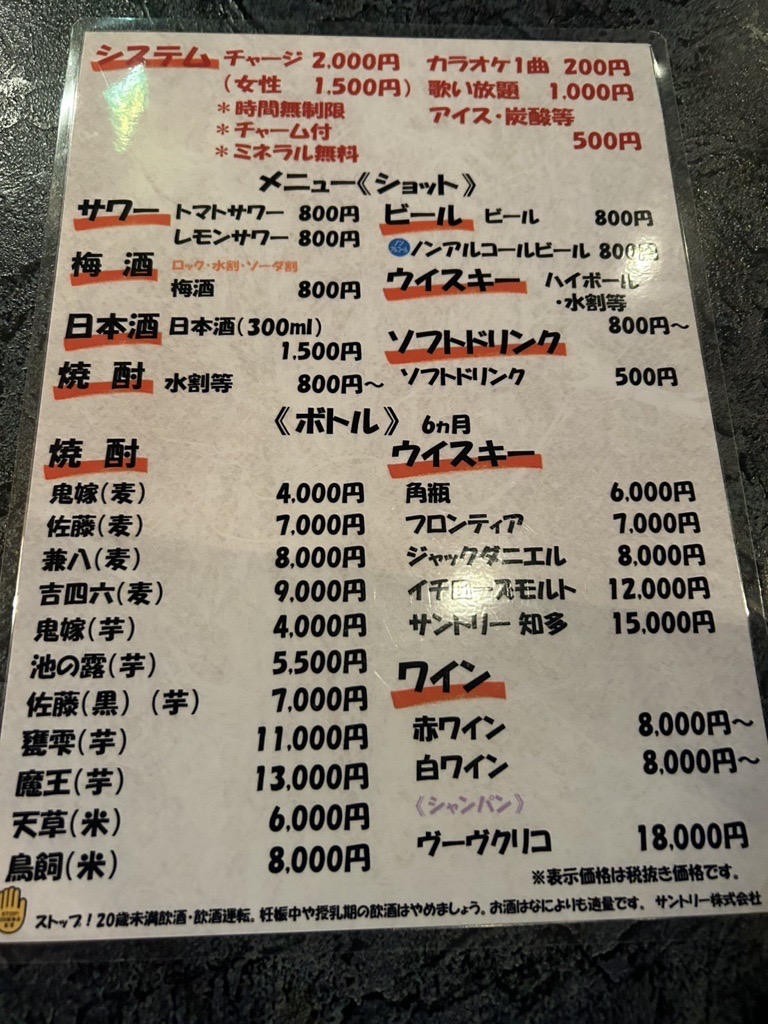 システム チャージ 2.000円 カラオケ1曲 200円
(女性 1.500円) 歌い放題 1.000円
＊時間無制限 アイス・炭酸等
＊チャーム付 500円
＊ミネラル無料
メニュー《ショット》
サワー トマトサワー 800円
レモンサワー 800円
梅酒 ロック・水割・ソーダ割
梅酒 800円
日本酒 日本酒(300ml)
1.500円
焼酎 水割等 800円～
ビール ビール 800円
ノンアルコールビール 800円
ウイスキー ハイボール
・水割等
800円～
ソフトドリンク
ソフトドリンク 500円
《ボトル》 6ヵ月
焼酎
鬼嫁(麦) 4,000円
佐藤(麦) 7,000円
兼八(麦) 8,000円
吉四六(麦) 9,000円
鬼嫁(芋) 4,000円
池の露(芋) 5,500円
佐藤(黒)(芋) 7,000円
甕雫(芋) 11,000円
魔王(芋) 13,000円
天草(米) 6,000円
鳥飼(米) 8,000円
ウイスキー
角瓶 6,000円
フロンティア 7,000円
ジャックダニエル 8,000円
イチローズモルト 12,000円
サントリー 知多 15,000円
ワイン
赤ワイン 8,000円～
白ワイン 8,000円～
《シャンパン》
ヴーヴクリコ 18,000円
※表示価格は税抜き価格です。
ストップ！20歳未満飲酒・飲酒運転。妊娠中や授乳期の飲酒はやめましょう。お酒はなによりも適量です。サントリー株式会社